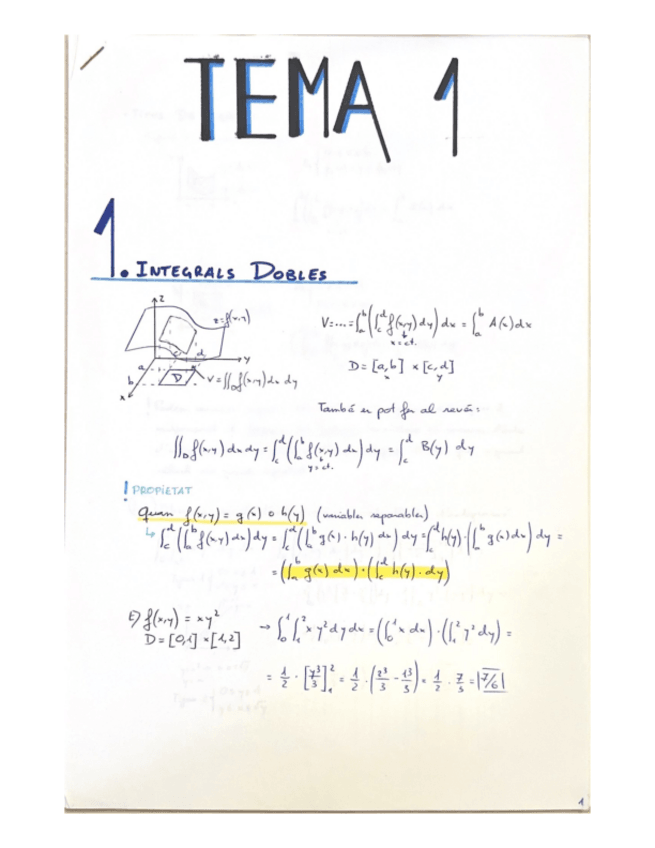 TEMA 1
1. INTEGRALS DOBLES
z
z=f(x,y)
c d y
a
b D V=∬_D f(x,y) dx dy
x
V=...=∫_a^b (∫_c^d f(x,y) dy) dx = ∫_a^b A(x) dx
x=ct.
D = [a,b] × [c,d]
x y
També es pot fer al revés:
∬_D f(x,y) dx dy = ∫_c^d (∫_a^b f(x,y) dx) dy = ∫_c^d B(y) dy
y=ct.
! PROPIETAT
Quan f(x,y) = g(x) · h(y) (variables separables)
↳ ∫_c^d (∫_a^b f(x,y) dx) dy = ∫_c^d (∫_a^b g(x) · h(y) dx) dy = ∫_c^d h(y) · (∫_a^b g(x) dx) dy =
= (∫_a^b g(x) dx) · (∫_c^d h(y) · dy)
E) f(x,y) = xy²
D = [0,1] × [1,2]
→ ∫_0^1 ∫_1^2 x y² dy dx = (∫_0^1 x dx) · (∫_1^2 y² dy) =
= 1/2 · [y³/3]_1^2 = 1/2 · (2³/3 - 1³/3) = 1/2 · 7/3 = |7/6|
1